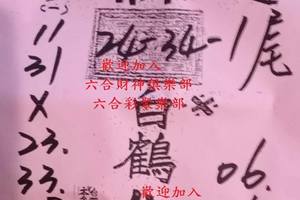 (一)
11
31
X
23.
33.
24-34-1尾
歡迎加入
六合財神俱樂部
六合彩俱樂部
白鶴
※
06.
歡迎加入